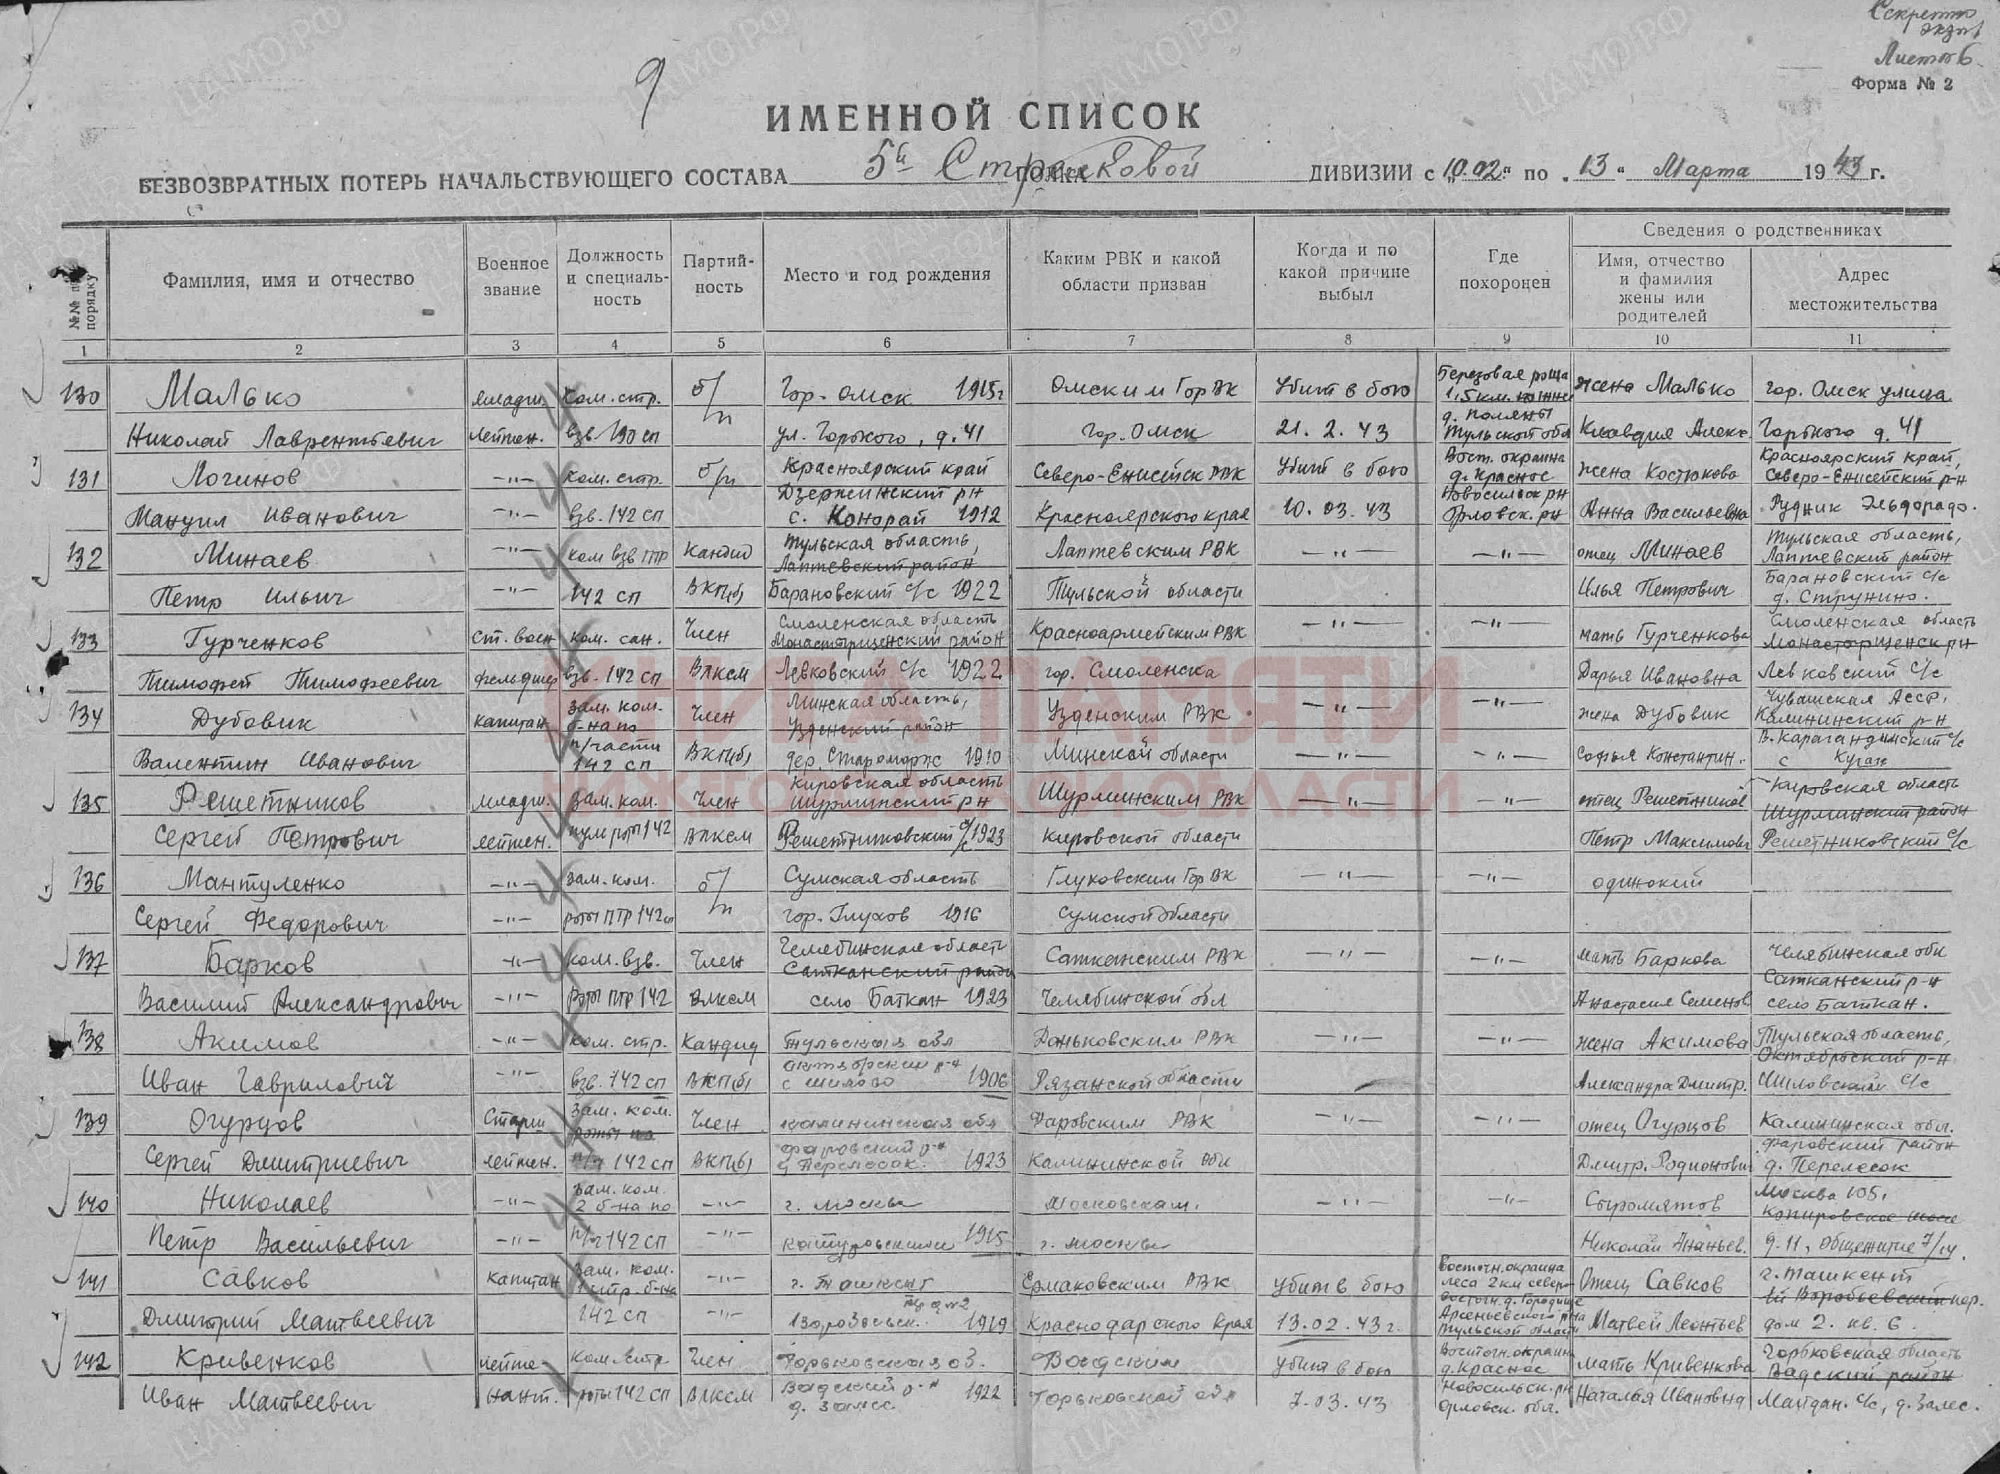 Секретно
экз. 1
Листов 6
Форма № 2
9
ИМЕННОЙ СПИСОК
БЕЗВОЗВРАТНЫХ ПОТЕРЬ НАЧАЛЬСТВУЮЩЕГО СОСТАВА 5й Стрелковой ДИВИЗИИ с „10.02“ по „13“ Марта 1943 г.
№№ по порядку | Фамилия, имя и отчество | Военное звание | Должность и специальность | Партийность | Место и год рождения | Каким РВК и какой области призван | Когда и по какой причине выбыл | Где похоронен | Сведения о родственниках
Имя, отчество и фамилия жены или родителей | Адрес местожительства
1 2 3 4 5 6 7 8 9 10 11
130 Малько Младш. Ком. стр. б/п Гор. Омск 1915 г Омским ГорВк Убит в бою Березовая роща 1,5 км. жена Малько гор. Омск улица
Николай Лаврентьевич лейтен. взв. 190 сп ул. Горького, д. 41 Гор. Омск 21. 2. 43 д. Поляны Тульской обл Клавдия Алекс. Горького д. 41
131 Логинов —"— ком. стр. б/п Красноярский край Северо-Енисейск РВК Убит в бою Вост. окраина д. Красное жена Костюкова Красноярский край, Северо-Енисейский р-н
Мануил Иванович —"— взв. 142 сп Дзержинский рн с. Конорай 1912 Красноярского края 10. 03. 43 Новосильск рн Орловск. рн Анна Васильевна Рудник Эльдорадо.
132 Минаев —"— ком взв ПТР Кандид Тульская область, Лаптевский район Лаптевским РВК —"— —"— отец Минаев Тульская область, Лаптевский район
Петр Ильич —"— 142 сп ВКП(б) Барановский с/с 1922 Тульской области Илья Петрович Барановский с/с д. Струнино.
133 Гурченков Ст. воен ком. сан. Член Смоленская область Монастырщенский район Красноармейским РВК —"— —"— мать Гурченкова Смоленская область Монастырщенск рн
Тимофей Тимофеевич фельдшер взв. 142 сп ВЛКСМ Левковский с/с 1922 гор. Смоленска Дарья Ивановна Левковский с/с
134 Дубовик капитан зам. ком. б-на по Член Минская область, Узденский район Узденским РВК —"— —"— жена Дубовик Чувашская Асср, Калининский р-н
Валентин Иванович п/части 142 сп ВКП(б) дер. 1910 Минской области —"— —"— Софья Константин. с/с с
135 Решетников младш. зам. ком. Член Кировская область Шурминский рн Шурминским РВК —"— —"— отец Решетников Кировская область Шурминский район
Сергей Петрович лейтен. пул роты 142 ВЛКСМ Решетниковский с/с 1923 Кировской области Петр Максимович Решетниковский с/с
136 Мантуленко —"— зам. ком. б/п Сумская область Глуховским ГорВк —"— —"— одинокий
Сергей Федорович —"— роты ПТР 142 сп гор. Глухов 1916 Сумской области
137 Барков —"— ком. взв. Член Челябинская область Саткинский район Саткинским РВК —"— —"— мать Баркова Челябинская обл Саткинский р-н
Василий Александрович —"— роты ПТР 142 ВЛКСМ село 1923 Челябинской обл Анастасия Семенов. село
138 Акимов —"— ком. стр. Кандид Тульская обл Даньковским РВК —"— —"— жена Акимова Тульская область, Октябрьский р-н
Иван Гаврилович —"— взв. 142 сп ВКП(б) Октябрский р-н с Шилово 1906 Рязанской области Александра Дмитр. Шиловский с/с
139 Огурцов Старш зам. ком. роты по Член Калининская обл Фаровским РВК —"— —"— отец Огурцов Калининская обл. Фаровский район
Сергей Дмитриевич лейтен. п/ч 142 сп ВКП(б) Фаровский р-н д Перелесок. 1923 Калининской обл Дмитр. Родионович д. Перелесок
140 Николаев —"— зам. ком. 2 б-на по —"— г. Москва Московским. —"— —"— Сыромятов Москва 105,
Петр Васильевич —"— п/ч 142 сп —"— 1915 г. Москвы Николай Ананьев. д. 11, общежитие 7/14.
141 Савков Капитан зам. ком. 1 стр. б-на —"— г. Ташкент Ермаковским РВК Убит в бою Восточн. окраина леса 2 км северо- Отец Савков г. Ташкент
Дмитрий Матвеевич 142 сп —"— 1919 Краснодарского края 13. 02. 43 г. восточн. д. Городище Арсеньевского р-на Тульской области Матвей Леонтьев 1й Воробьевский пер. дом 2. кв. 6.
142 Кривенков лейте- ком. стр Член Горьковская об. Вадским Убит в бою Восточн. окраина д. Красное мать Кривенкова Горьковская область Вадский район
Иван Матвеевич нант. роты 142 сп ВЛКСМ Вадский р-н д. Залес 1922 Горьковской обл 7. 03. 43 Новосильск. рн Орловск. обл. Наталья Ивановна Майдан. с/с, д. Залес.
КНИГА ПАМЯТИ
НИЖЕГОРОДСКОЙ ОБЛАСТИ
ЦАМО.РФ